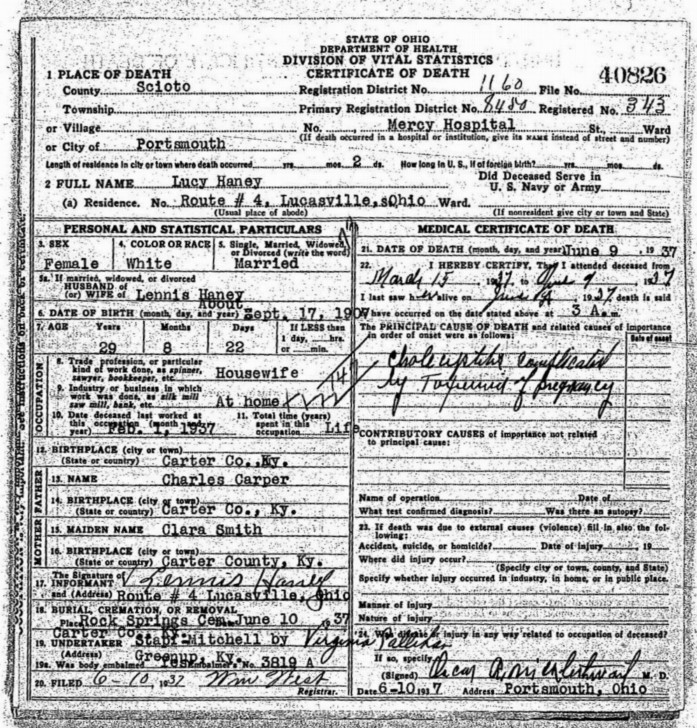 STATE OF OHIO
DEPARTMENT OF HEALTH
DIVISION OF VITAL STATISTICS
CERTIFICATE OF DEATH
40826
1 PLACE OF DEATH
County Scioto Registration District No. 1160 File No.
Township Primary Registration District No. 8480 Registered No. 343
or Village No. Mercy Hospital St., Ward
or City of Portsmouth (If death occurred in a hospital or institution, give its NAME instead of street and number)
Length of residence in city or town where death occurred yrs. mos. 2 ds. How long in U. S., if of foreign birth? yrs. mos. ds.
2 FULL NAME Lucy Haney Did Deceased Serve in U. S. Navy or Army
(a) Residence. No. Route # 4, Lucasville, Ohio Ward.
(Usual place of abode) (If nonresident give city or town and State)
PERSONAL AND STATISTICAL PARTICULARS
3. SEX 4. COLOR OR RACE 5. Single, Married, Widowed, or Divorced (write the word)
Female White Married
5a. If married, widowed, or divorced
HUSBAND of
(or) WIFE of Lennis Haney
About
6. DATE OF BIRTH (month, day, and year) Sept. 17, 1907
7. AGE Years Months Days If LESS than 1 day, hrs. or min.
29 8 22
OCCUPATION
8. Trade, profession, or particular kind of work done, as spinner, sawyer, bookkeeper, etc. Housewife
9. Industry or business in which work was done, as silk mill saw mill, bank, etc. At home
10. Date deceased last worked at this occupation (month year) Feb. 1, 1937 11. Total time (years) spent in this occupation Life
12. BIRTHPLACE (city or town)
(State or country) Carter Co., Ky.
FATHER
13. NAME Charles Carper
14. BIRTHPLACE (city or town)
(State or country) Carter Co., Ky.
MOTHER
15. MAIDEN NAME Clara Smith
16. BIRTHPLACE (city or town)
(State or country) Carter County, Ky.
The Signature of
17. INFORMANT Lennis Haney
and (Address) Route # 4 Lucasville, Ohio
18. BURIAL, CREMATION, OR REMOVAL
Place Rock Springs Cem. June 10 1937
Carter Co.
19. UNDERTAKER Mitchell by Virginia
(Address) Greenup, Ky.
19a. Was body embalmed Yes Embalmer's No. 3819 A
20. FILED 6-10 1937 Wm West
Registrar.
MEDICAL CERTIFICATE OF DEATH
21. DATE OF DEATH (month, day, and year) June 9 1937
22. I HEREBY CERTIFY, That I attended deceased from
March 15 1937 to June 9 1937
I last saw her alive on June 1937 death is said
have occurred on the date stated above at 3 A. m.
The PRINCIPAL CAUSE OF DEATH and related causes of importance
in order of onset were as follows: Date of onset
by of pregnancy
CONTRIBUTORY CAUSES of importance not related
to principal cause:
Name of operation Date of
What test confirmed diagnosis? Was there an autopsy?
23. If death was due to external causes (violence) fill in also the following:
Accident, suicide, or homicide? Date of injury 19
Where did injury occur?
(Specify city or town, county, and State)
Specify whether injury occurred in industry, in home, or in public place.
Manner of injury
Nature of injury
24. Was disease or injury in any way related to occupation of deceased?
If so, specify
(Signed) Oscar M. D.
Date 6-10 1937 Address Portsmouth, Ohio